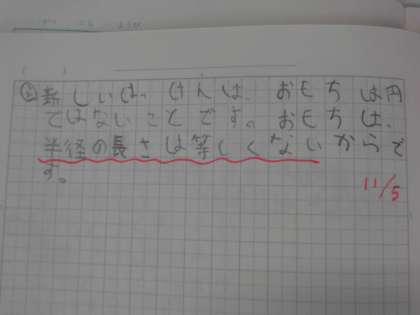 ②新しいはっけんは、おもちは円
ではないことです。おもちは、
半径の長さは等しくないからで
す。
11/5